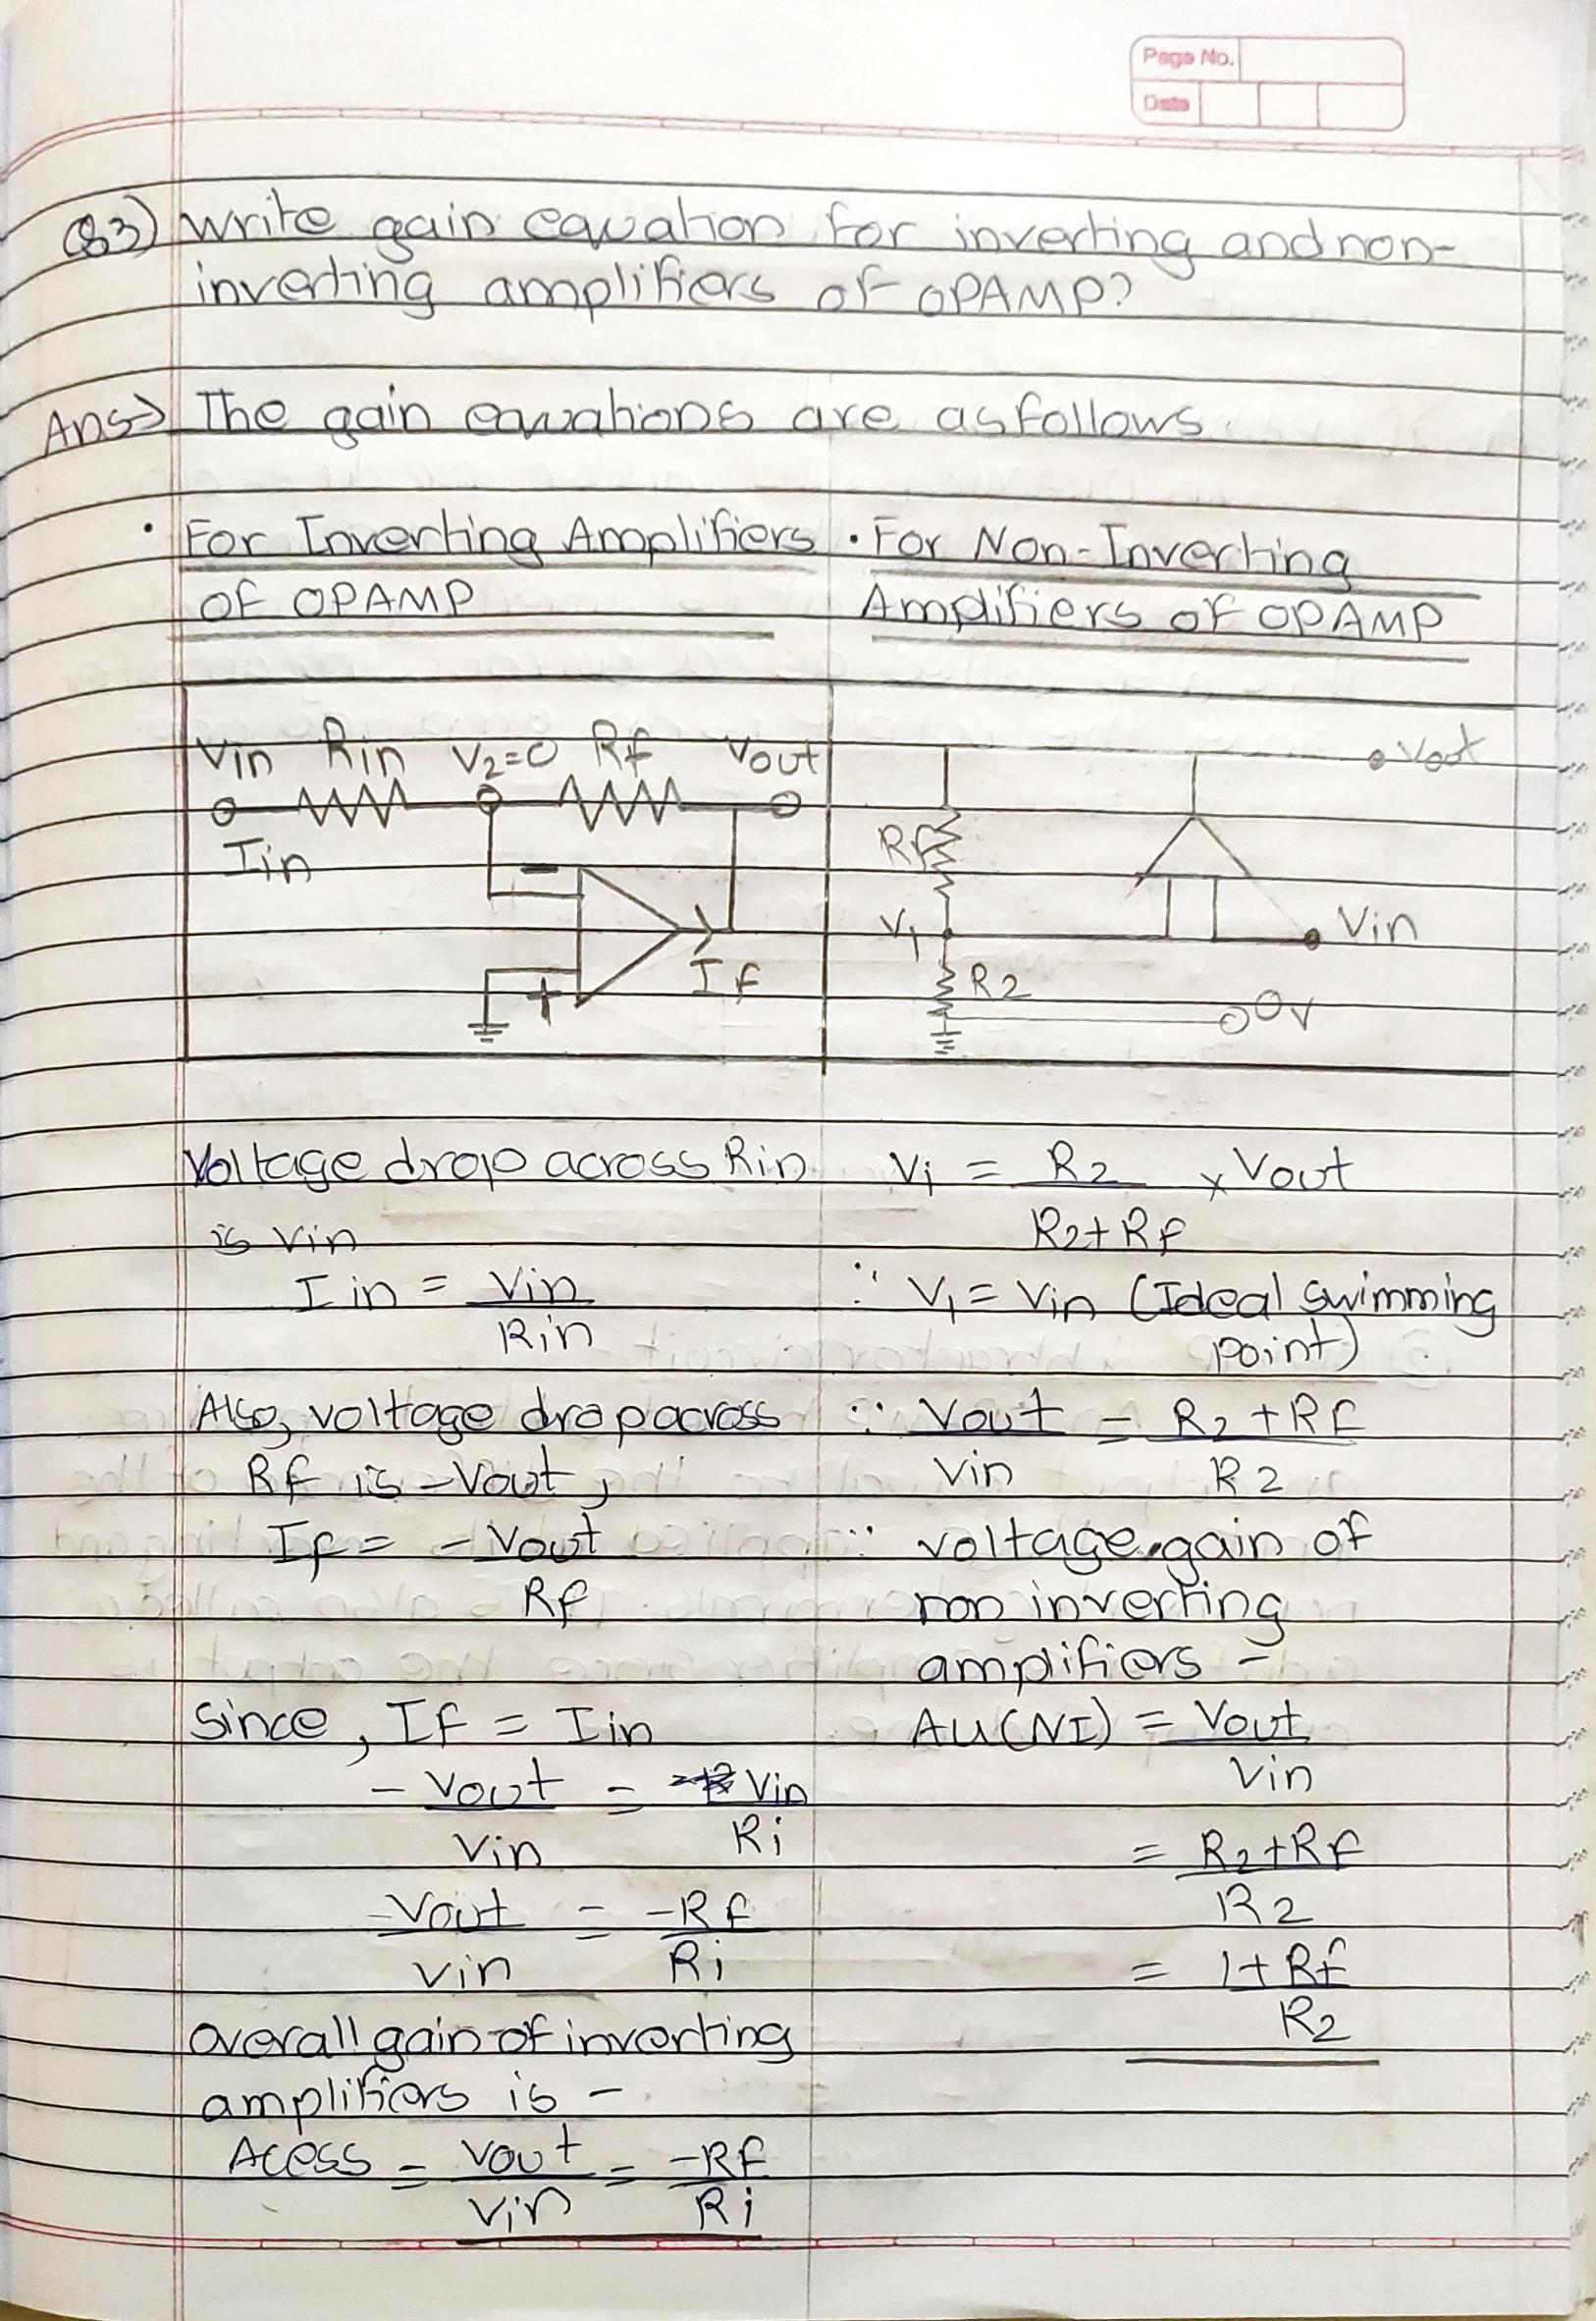 Page No.
Date
Q3) Write gain equation for inverting and non-
inverting amplifiers of OPAMP?
Ans→ The gain equations are as follows.
• For Inverting Amplifiers
of OPAMP
Vin Rin V2=0 Rf Vout
Iin
−
+
If
Voltage drop across Rin
is Vin
Iin = Vin
Rin
Also, voltage drop across
Rf is -Vout,
If = - Vout
Rf
Since, If = Iin
- Vout = Vin
Vin Ri
-Vout = -Rf
Vin Ri
Overall gain of inverting
amplifiers is -
Acess = Vout = -Rf
Vin Ri
• For Non-Inverting
Amplifiers of OPAMP
Vout
Rf
V1 Vin
R2
0v
V1 = R2 × Vout
R2+Rf
∵ V1 = Vin (Ideal swimming
point)
∵ Vout = R2+Rf
Vin R2
∵ voltage gain of
non inverting
amplifiers -
AU(NI) = Vout
Vin
= R2+Rf
R2
= 1+Rf
R2